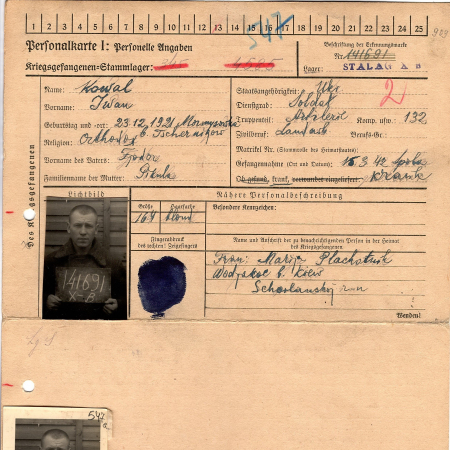 1 2 3 4 5 6 7 8 9 10 11 12 13 14 15 16 17 18 19 20 21 22 23 24 25
547
Personalkarte I: Personelle Angaben
Beschriftung der Erkennungsmarke
Nr. 141691
Kriegsgefangenen-Stammlager:
Lager: STALAG X B
Des Kriegsgefangenen
Name: Kowal
Vorname: Iwan
Geburtstag und -ort: 23.12.1921
Religion: Orthodox
Vorname des Vaters: Fjodor
Familienname der Mutter:
Staatsangehörigkeit: Ukr
2
Dienstgrad: Soldat
Truppenteil: Artilerie Kom. usw.: 132
Zivilberuf: Landarb Berufs-Gr.:
Matrikel Nr. (Stammrolle des Heimatstaates):
Gefangennahme (Ort und Datum): 15.3.42
Ob gesund, krank, verwundet eingeliefert: krank
Lichtbild
Nähere Personalbeschreibung
Größe
164
Haarfarbe
blond
Besondere Kennzeichen:
Fingerabdruck
des rechten! Zeigefingers
Name und Anschrift der zu benachrichtigenden Person in der Heimat
des Kriegsgefangenen:
Frau: Marija
b. Kiew
141691
X-B
Wenden!
547